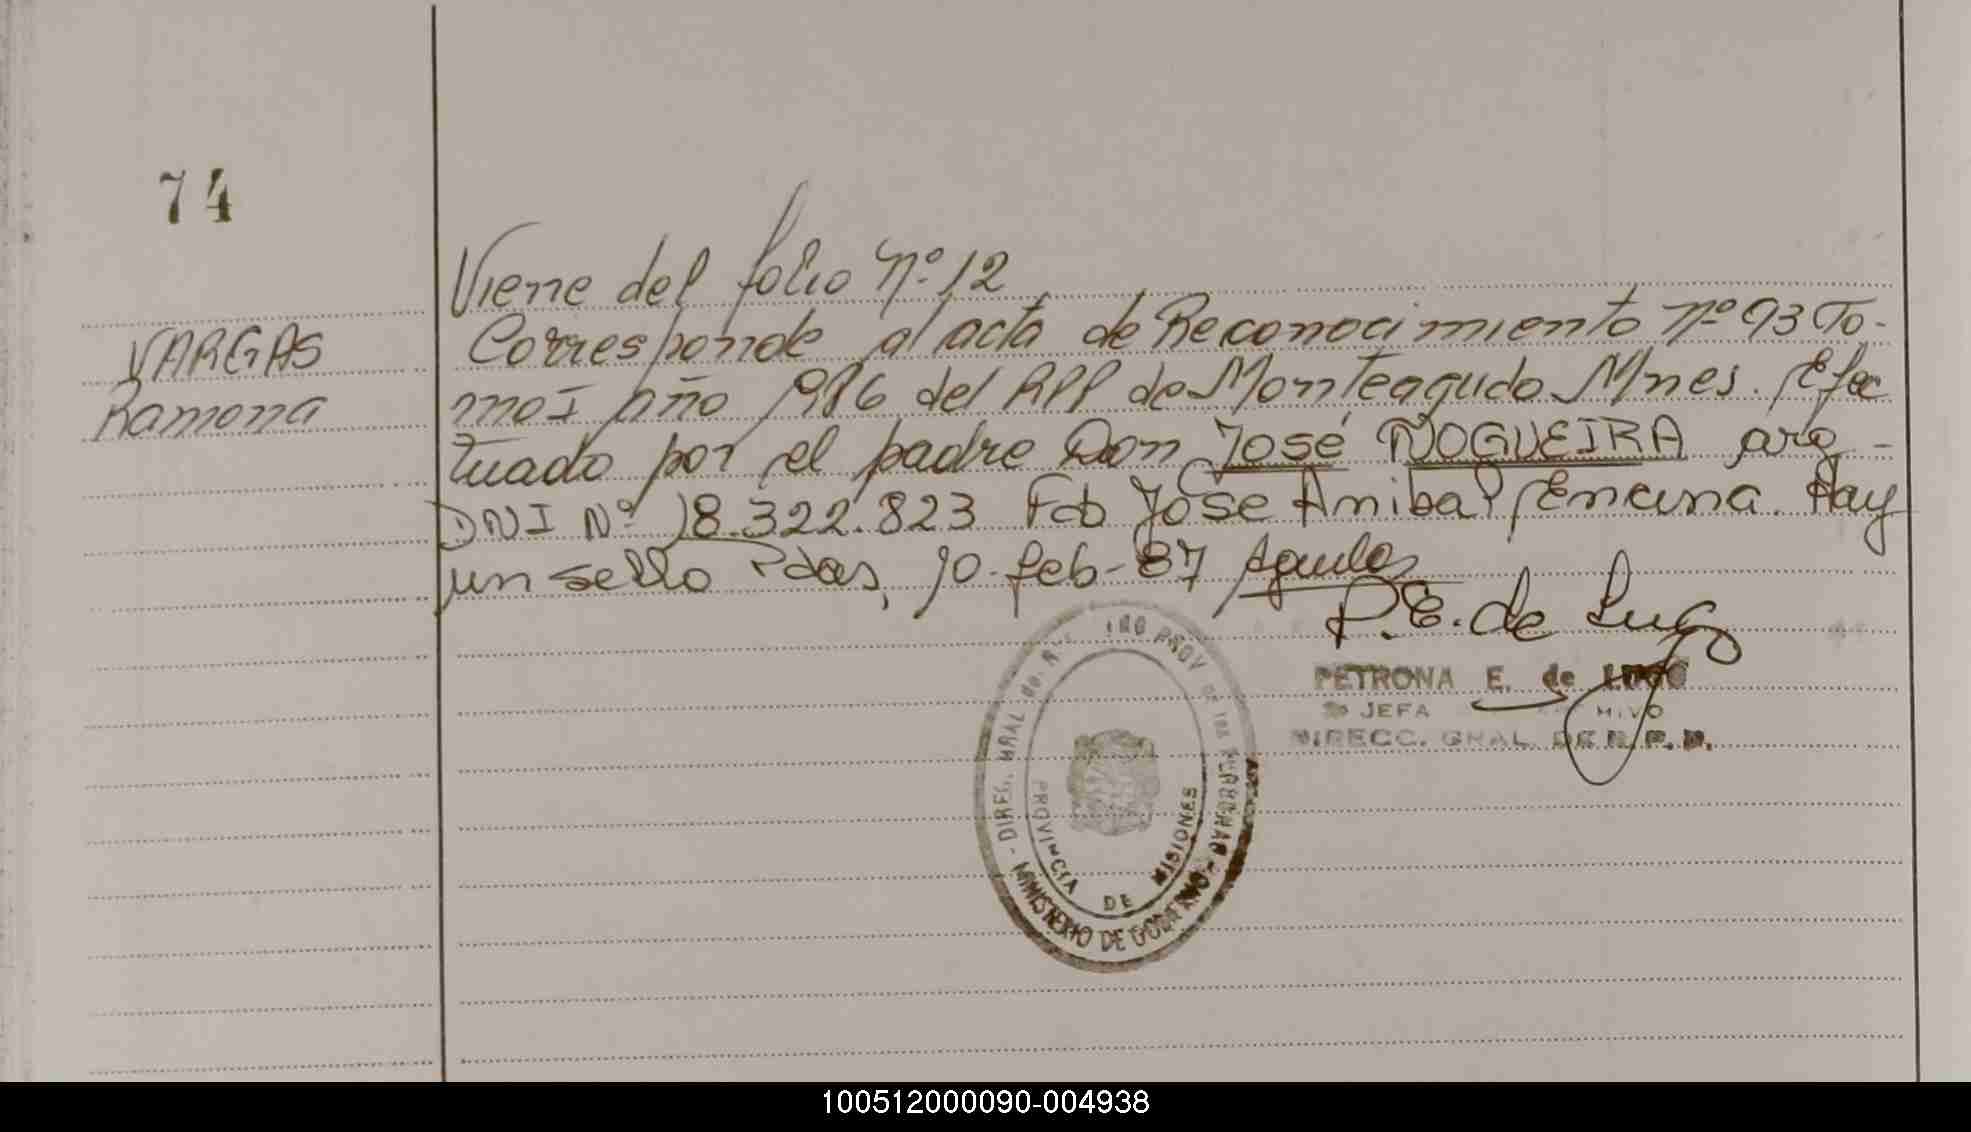 74
VARGAS
Ramona
Viene del folio Nº 12
Corresponde al acta de Reconocimiento nº 93 To-
mo I año 1986 del RPP de Monteagudo Mnes. Efec
tuado por el padre Don José NOGUEIRA arg-
DNI Nº 18.322.823 Fdo José Anibal Encina. Hay
un sello Pdas, 10-feb-87
P.E. de Lugo
PETRONA E. de LUGO
JEFA
DIRECC. GRAL. DE R. P. P.
PROVINCIA DE MISIONES
MINISTERIO DE GOBIERNO
100512000090-004938